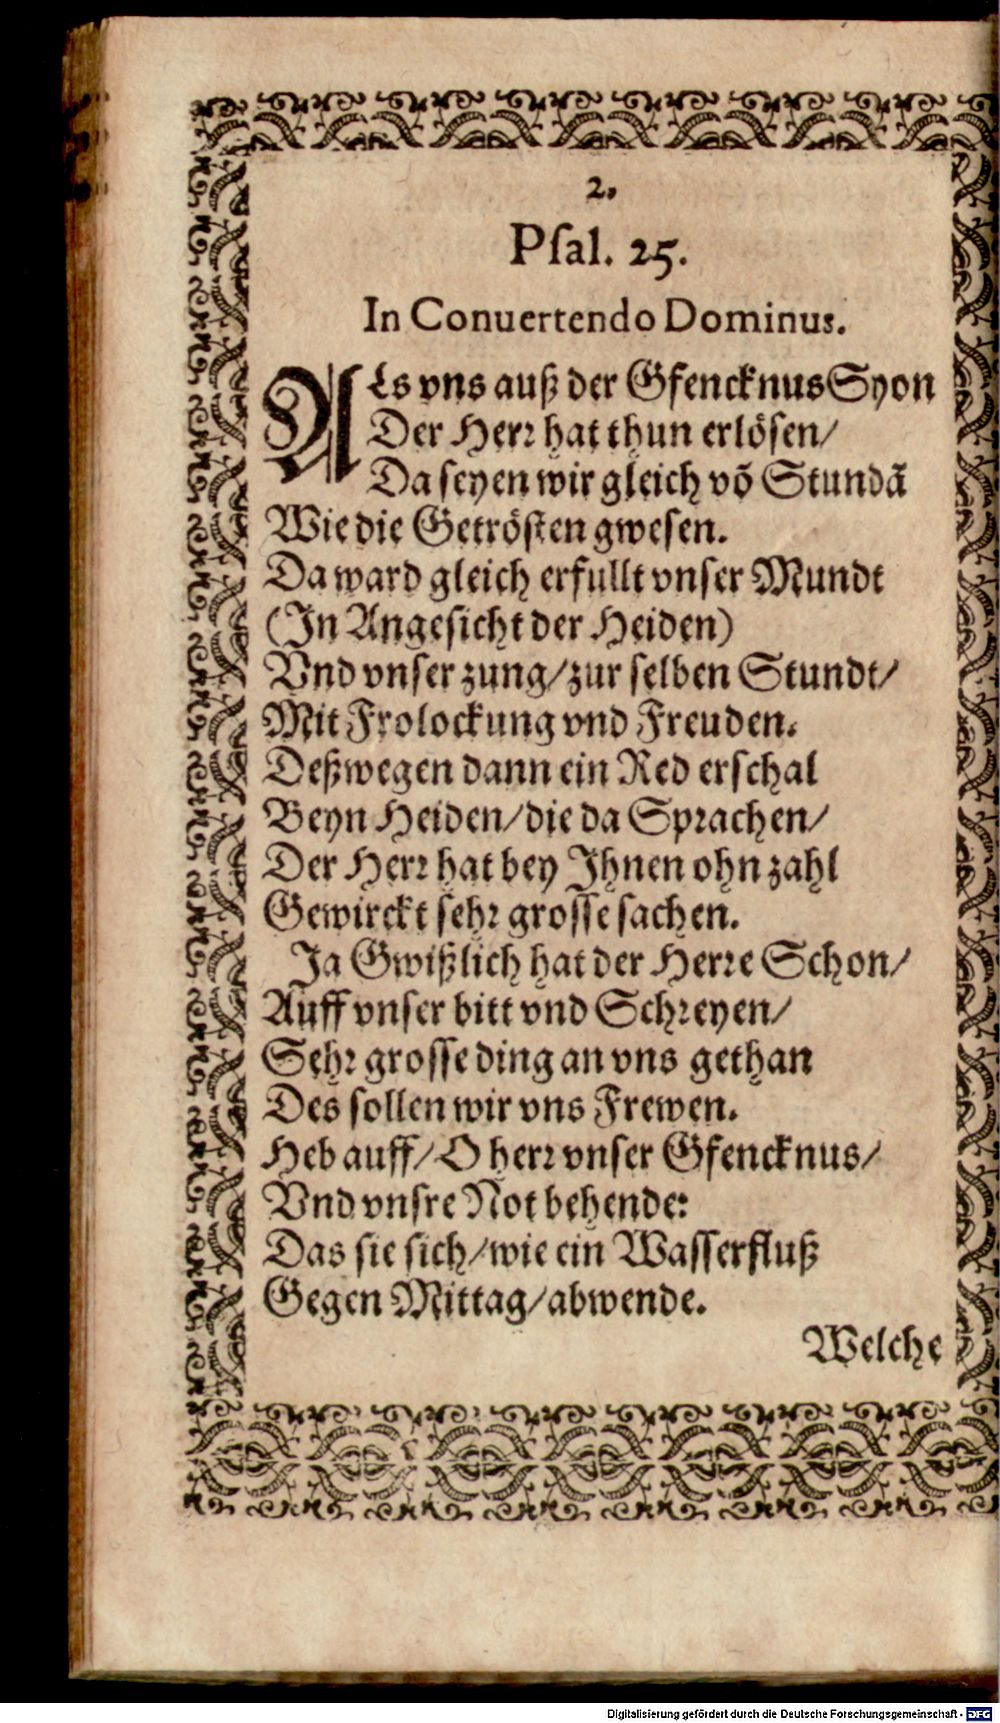 2.
Psal. 25.
In Conuertendo Dominus.
ALs vns auß der Gfencknus Syon
Der Herr hat thun erlösen/
Da seyen wir gleich võ Stundã
Wie die Getrösten gwesen.
Da ward gleich erfullt vnser Mundt
(In Angesicht der Heiden)
Vnd vnser zung/zur selben Stundt/
Mit Frolockung vnd Freuden.
Deßwegen dann ein Red erschal
Beyn Heiden/die da Sprachen/
Der Herr hat bey Ihnen ohn zahl
Gewirckt sehr grosse sachen.
Ja Gwißlich hat der Herre Schon/
Auff vnser bitt vnd Schreyen/
Sehr grosse ding an vns gethan
Des sollen wir vns Frewen.
Heb auff/O herr vnser Gfencknus/
Vnd vnsre Not behende:
Das sie sich/wie ein Wasserfluß
Gegen Mittag/abwende.
Welche
Digitalisierung gefördert durch die Deutsche Forschungsgemeinschaft - DFG